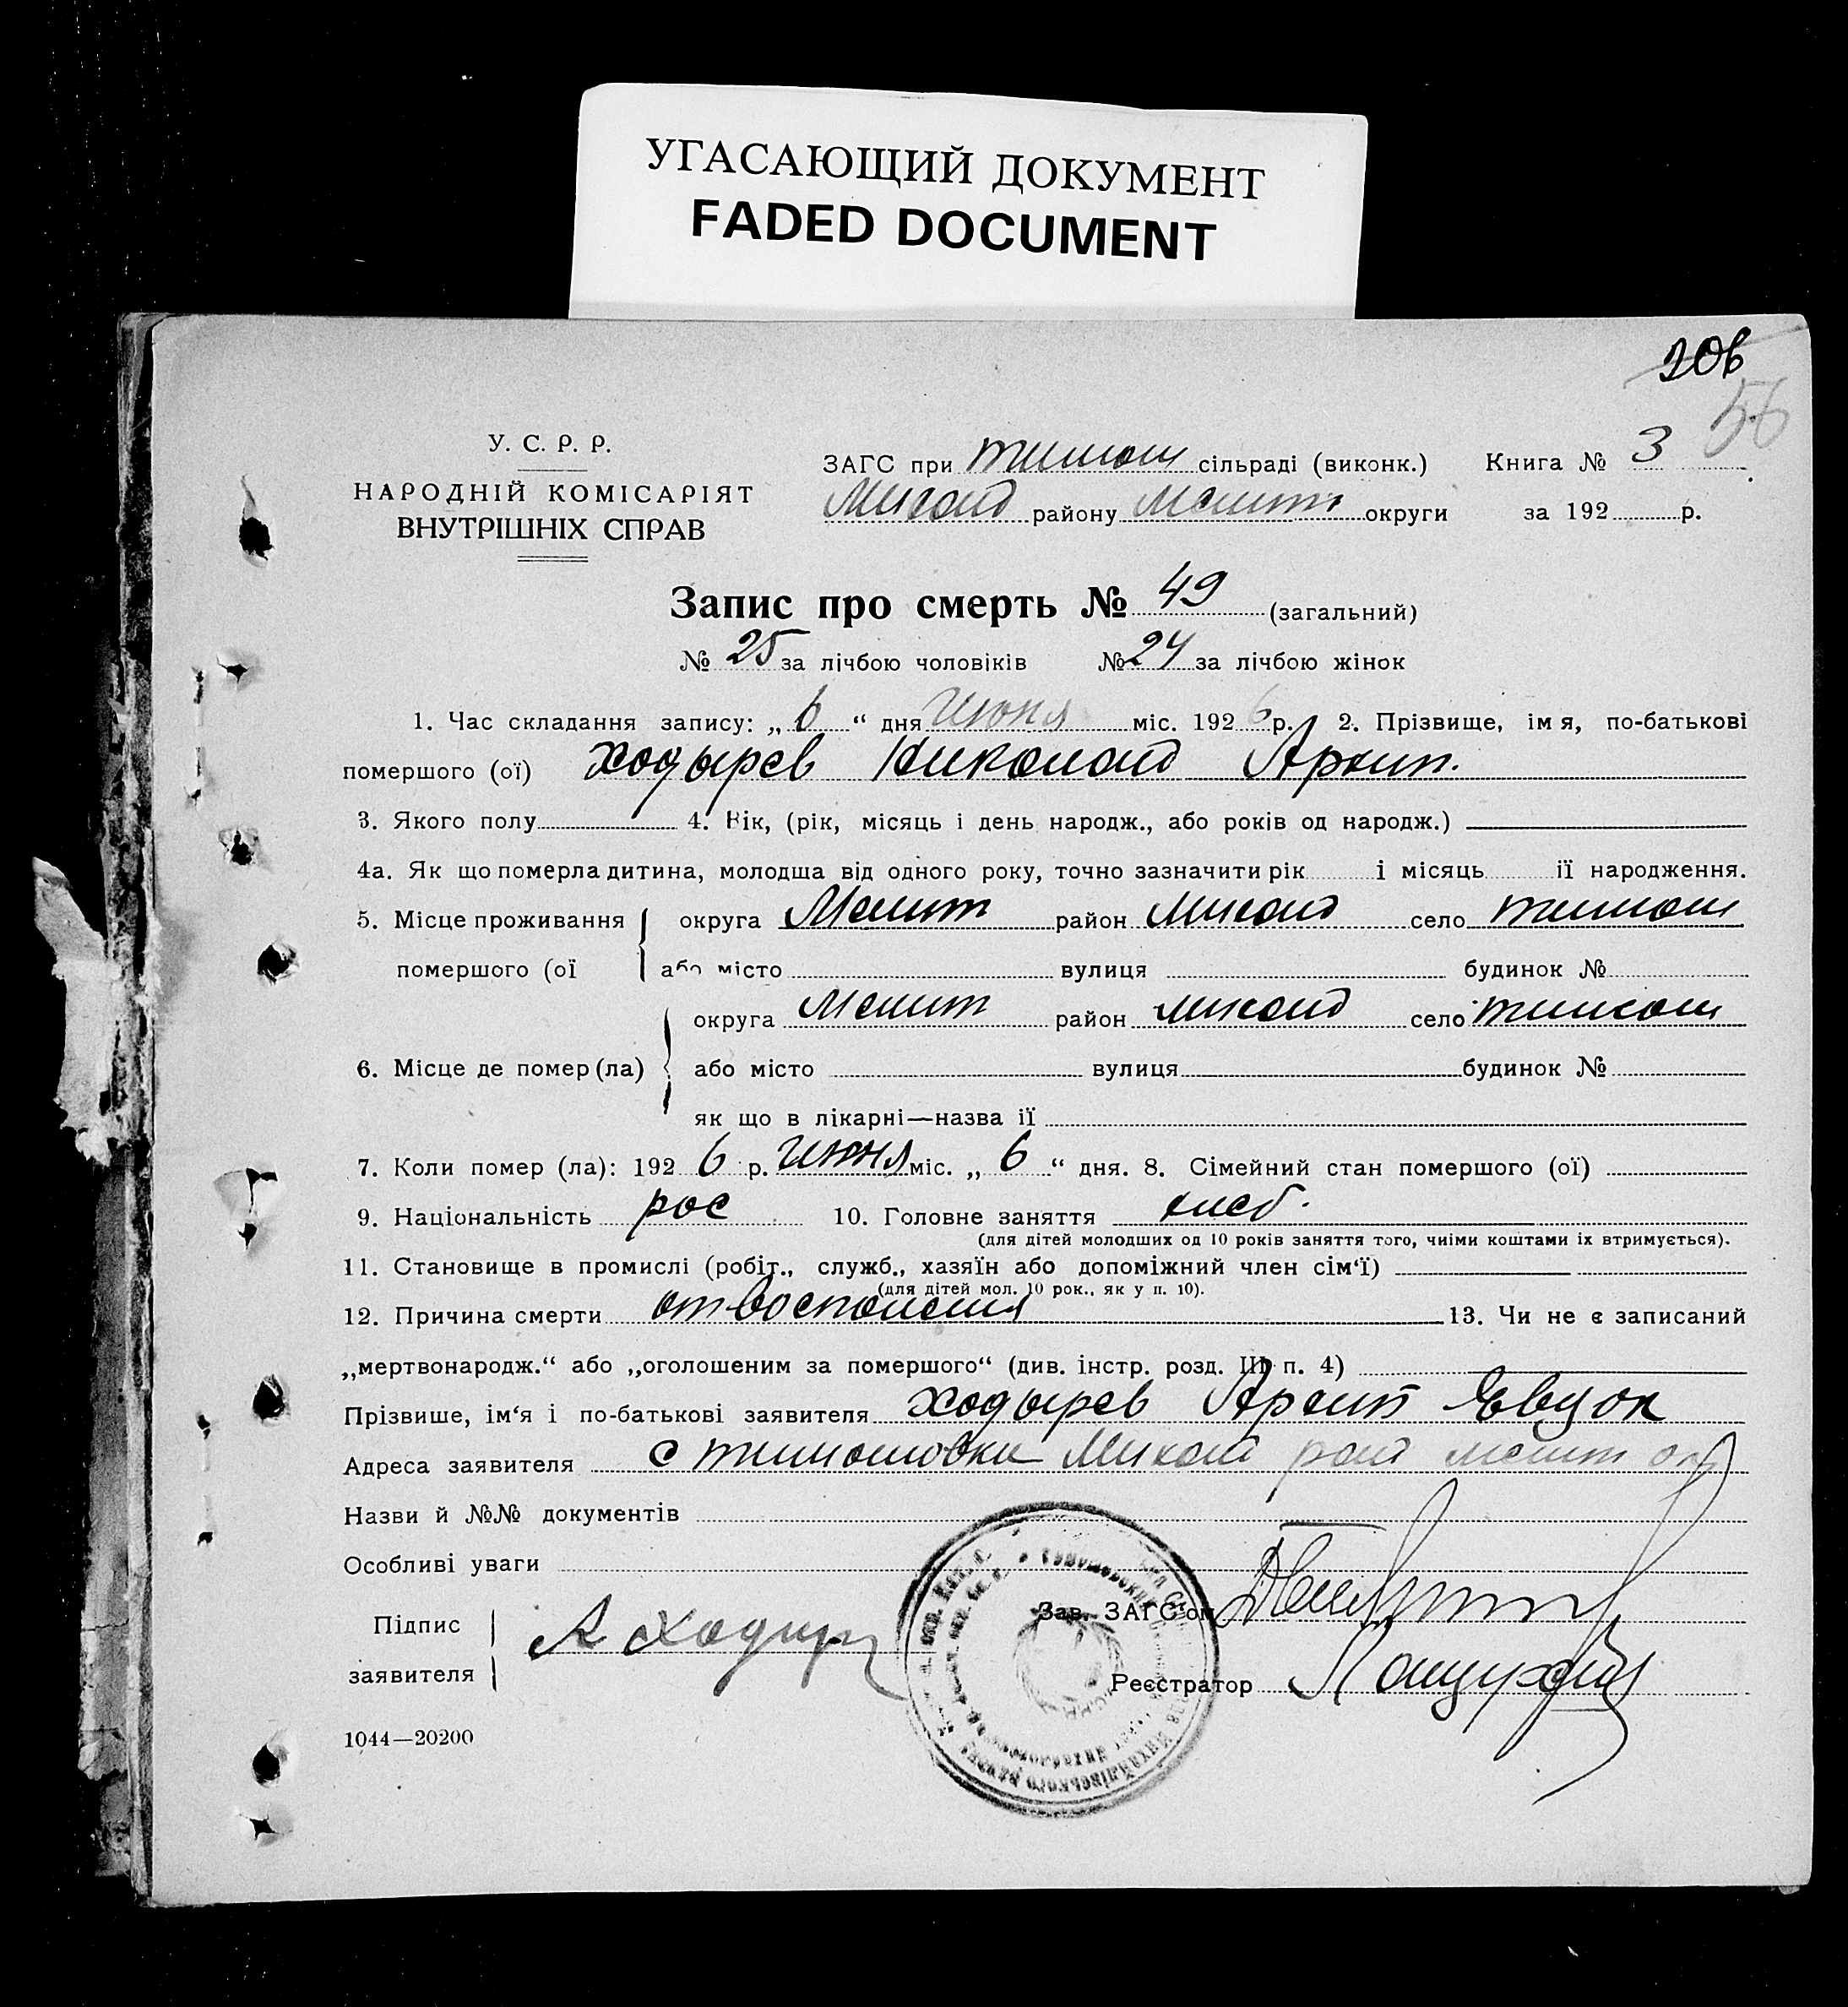 УГАСАЮЩИЙ ДОКУМЕНТ
FADED DOCUMENT
206
56
У. С. Р. Р.
НАРОДНІЙ КОМІСАРІЯТ
ВНУТРІШНІХ СПРАВ
ЗАГС при тимош сільраді (виконк.) Книга № 3
Михайл району Мелит округи за 192 р.
Запис про смерть № 49 (загальний)
№ 25 за лічбою чоловіків № 24 за лічбою жінок
1. Час складання запису: „ 6 “ дня июня міс. 192 6 р. 2. Прізвище, імя, по-батькові
помершого (ої) Ходырев Николай Архип.
3. Якого полу 4. Вік, (рік, місяць і день народж., або років од народж.)
4а. Як що померла дитина, молодша від одного року, точно зазначити рік і місяць її народження.
5. Місце проживання округа Мелит район Михайл село тимош
помершого (ої або місто вулиця будинок №
округа Мелит район Михайл село тимош
6. Місце де помер (ла) або місто вулиця будинок №
як що в лікарні—назва її
7. Коли помер (ла): 192 6 р. июня міс. „ 6 “ дня. 8. Сімейний стан помершого (ої)
9. Національність рос 10. Головне заняття хлеб.
(для дітей молодших од 10 років заняття того, чиїми коштами їх втримується).
11. Становище в промислі (робіт., служб., хазяїн або допоміжний член сім‘ї)
(для дітей мол. 10 рок., як у п. 10).
12. Причина смерти от воспаления 13. Чи не є записаний
„мертвонародж.“ або „оголошеним за помершого“ (див. інстр. розд. III п. 4)
Прізвише, ім‘я і по-батькові заявителя Ходырев Архип Евдок
Адреса заявителя с тимошовка Михайл рай мелит окр
Назви й №№ документів
Особливі уваги
Підпис
заявителя А Ходыр
Зав. ЗАГС‘ом
Реєстратор
Михайлівського району
1044—20200